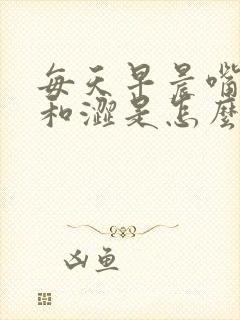 每天早晨嘴
和澀是怎麼
凶鱼